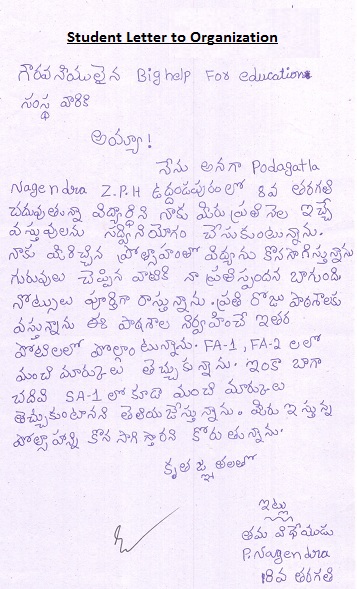 Student Letter to Organization
గౌరవనీయులైన Bighelp For education
సంస్థ వారికి
అయ్యా!
నేను అనగా Podagatla
Nagendra Z.P.H ఉద్దండపురంలో 8వ తరగతి
చదువుతున్నా విద్యార్థిని నాకు మీరు ప్రతి నెల ఇచ్చే
వస్తువులను సద్వినియోగం చేసుకుంటున్నాను.
నాకు మీరిచ్చిన ప్రోత్సాహంతో విద్యను కొనసాగిస్తున్నాను
గురువులు చెప్పిన వాటికి నా ప్రతిస్పందన బాగుండి
నోట్సులు పూర్తిగా రాస్తున్నాను. ప్రతి రోజు పాఠశాలకు
వస్తున్నాను ఈ పాఠశాల నిర్వహించే ఇతర
పోటీలలో పాల్గొంటున్నాను. FA-1, FA-2 లలో
మంచి మార్కులు తెచ్చుకున్నాను. ఇంకా బాగా
చదివి SA-1 లో కూడా మంచి మార్కులు
తెచ్చుకుంటానని తెలియచేస్తున్నాను. మీరు ఇస్తున్న
ప్రోత్సాహాన్ని కొనసాగిస్తారని కోరుతున్నాను.
కృతజ్ఞతలతో
ఇట్లు
తమ విధేయుడు
P. Nagendra
8వ తరగతి